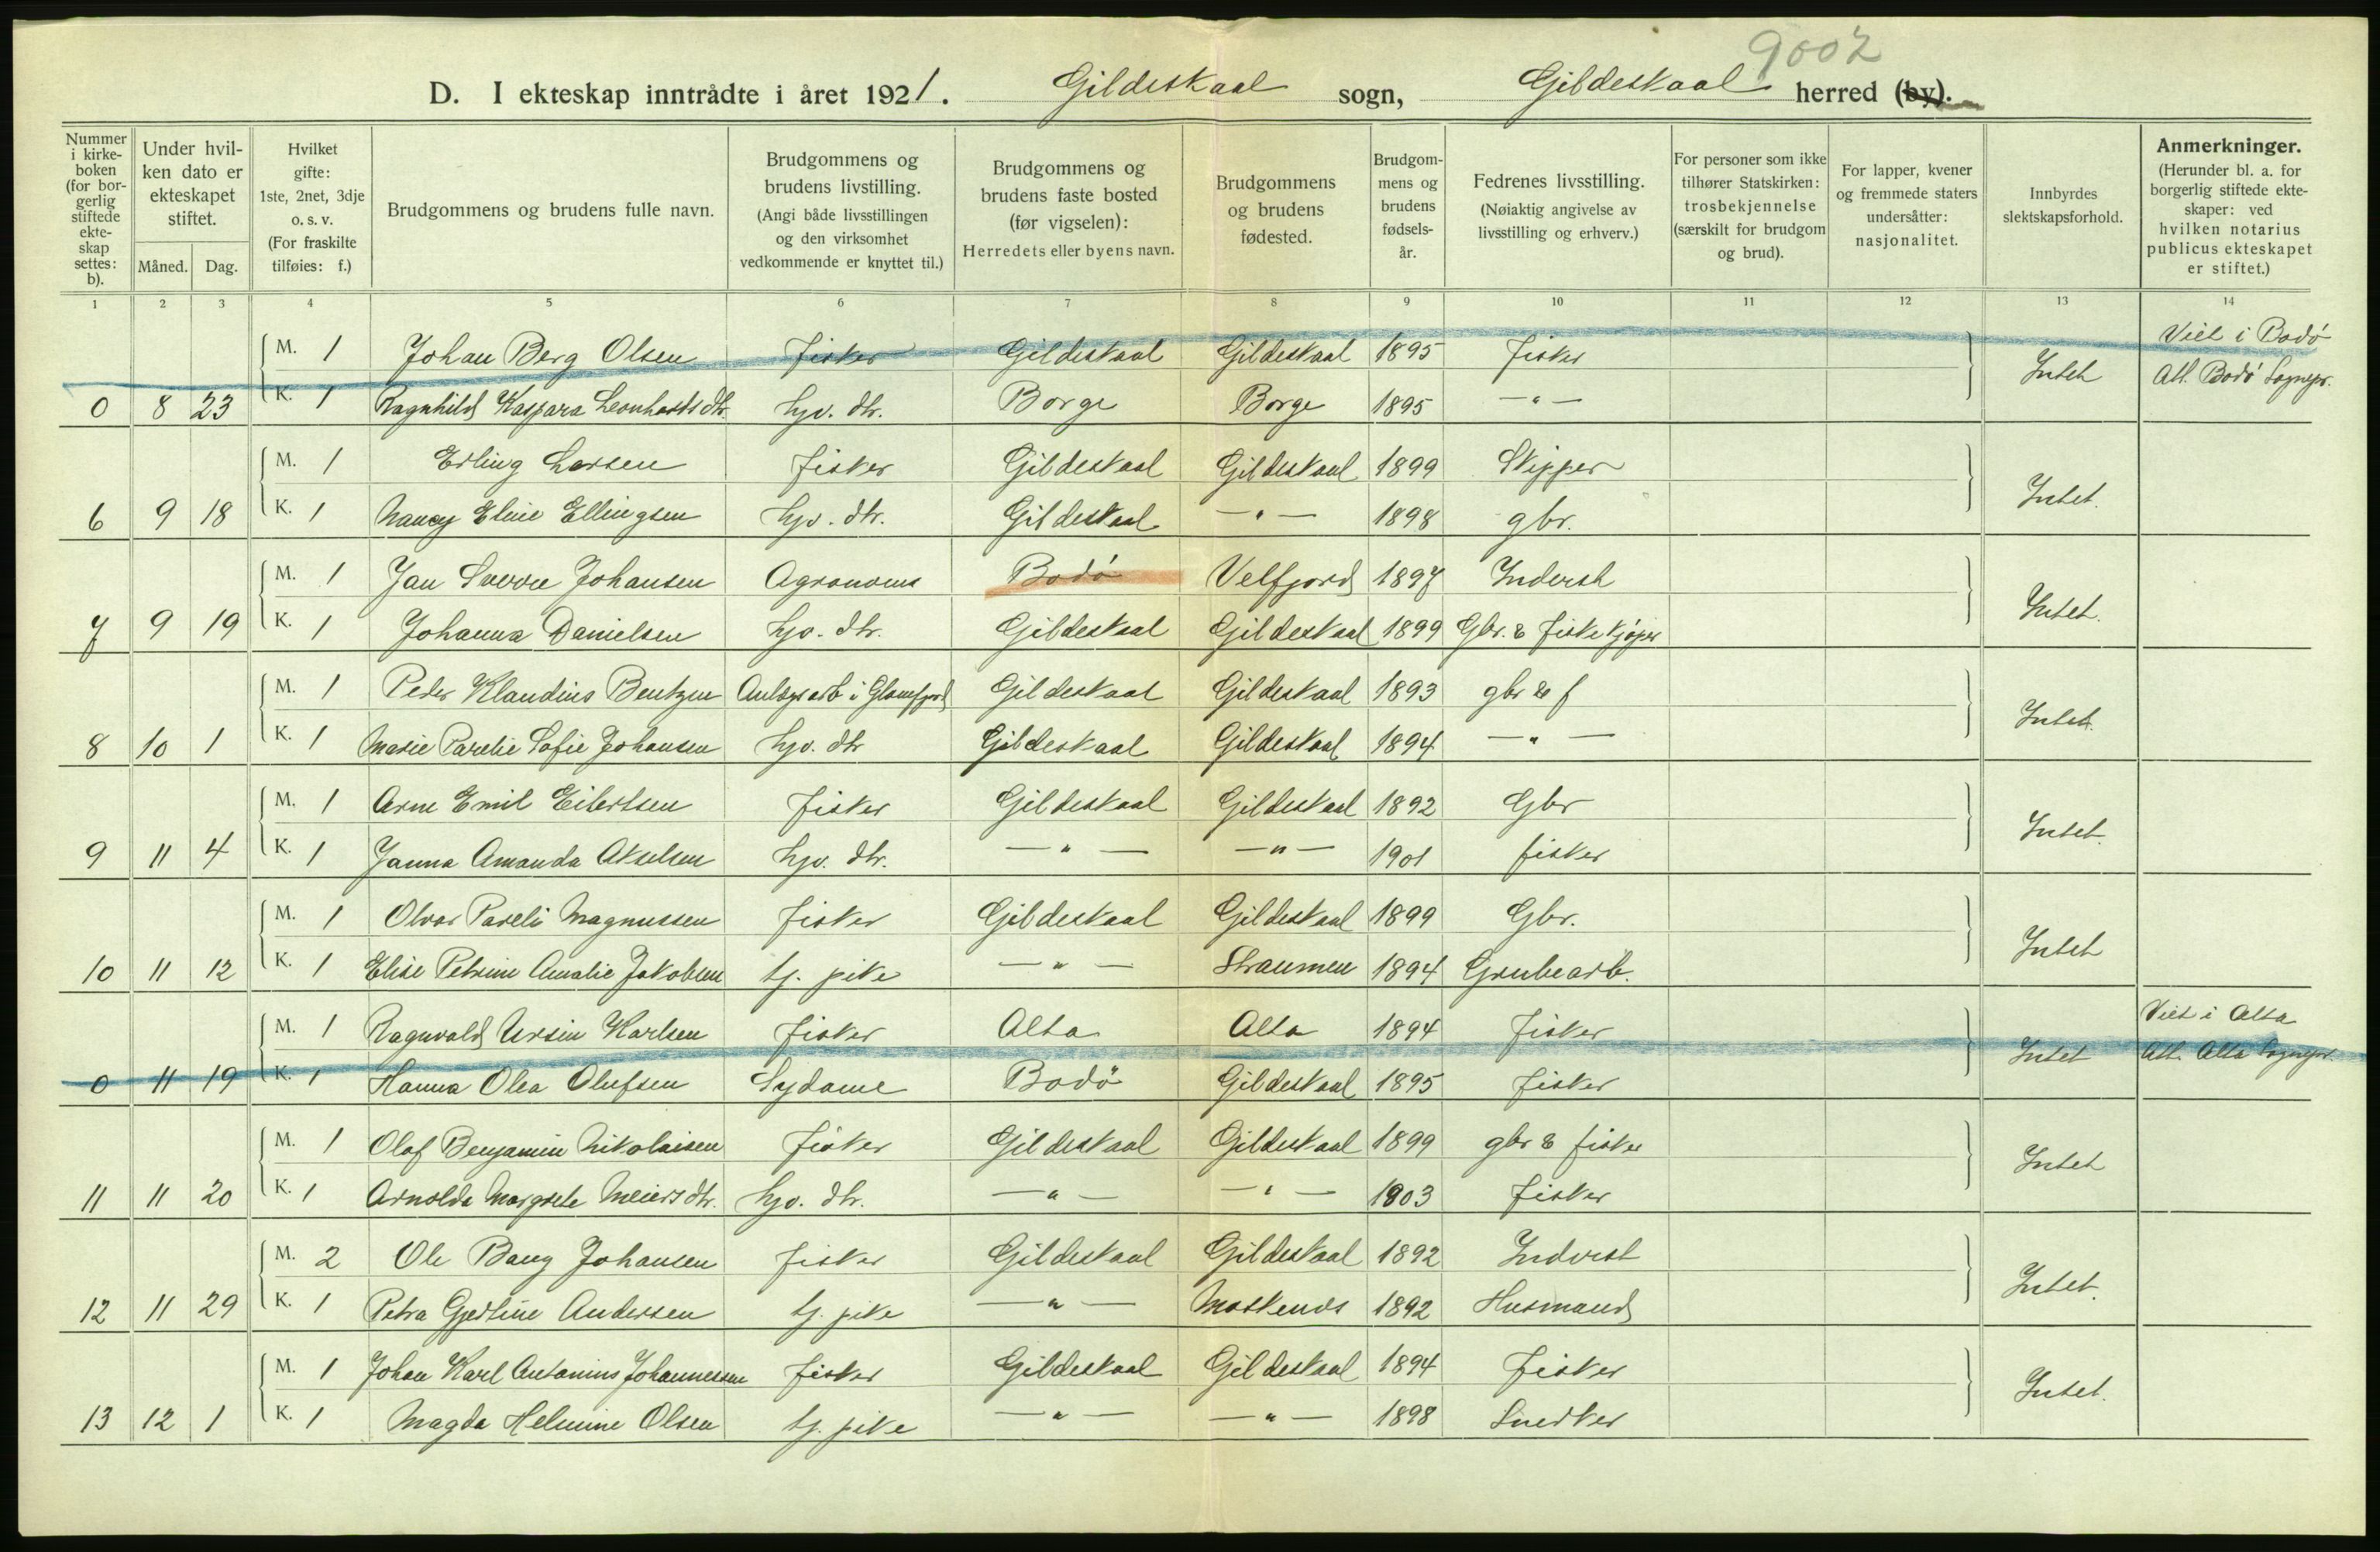 9002
D. I ekteskap inntrådte i året 1921. Gildeskaal sogn, Gildeskaal herred (by).
Nummer i kirke-boken (for bor-gerlig stiftede ekte-skap settes: b).
Under hvil-ken dato er ekteskapet stiftet.
Måned. Dag.
Hvilket gifte: 1ste, 2net, 3dje o. s. v. (For fraskilte tilføies: f.)
Brudgommens og brudens fulle navn.
Brudgommens og brudens livstilling. (Angi både livsstillingen og den virksomhet vedkommende er knyttet til.)
Brudgommens og brudens faste bosted (før vigselen): Herredets eller byens navn.
Brudgommens og brudens fødested.
Brudgom-mens og brudens fødsels-år.
Fedrenes livsstilling. (Nøiaktig angivelse av livsstilling og erhverv.)
For personer som ikke tilhører Statskirken: trosbekjennelse (særskilt for brudgom og brud).
For lapper, kvener og fremmede staters undersåtter: nasjonalitet.
Innbyrdes slektskapsforhold.
Anmerkninger. (Herunder bl. a. for borgerlig stiftede ekte-skaper: ved hvilken notarius publicus ekteskapet er stiftet.)
1 2 3 4 5 6 7 8 9 10 11 12 13 14
M. 1 Johan Berg Olsen fisker Gildeskaal Gildeskaal 1895 fisker Intet Viet i Bodø
0 8 23 K. 1 Ragnhild Kaspara Leonhartsdtr. hjv. dtr. Borge Borge 1895 — " — Att. Bodø Sognepr.
M. 1 Erling Larsen fisker Gildeskaal Gildeskaal 1899 Skipper Intet.
6 9 18 K. 1 Nancy Eline Ellingsen hjv. dtr. Gildeskaal — " — 1898 gbr.
M. 1 Jan Sverre Johansen Agronom Bodø Velfjord 1897 Inderst Intet.
7 9 19 K. 1 Johanna Danielsen hjv. dtr. Gildeskaal Gildeskaal 1899 Gbr. & fiskekjøper
M. 1 Peder Klaudius Bentzen Anlægsarb i Glomfjord Gildeskaal Gildeskaal 1893 gbr & f Intet.
8 10 1 K. 1 Marie Parelie Sofie Johansen hjv. dtr Gildeskaal Gildeskaal 1894 — " —
M. 1 Arne Emil Eilertsen fisker Gildeskaal Gildeskaal 1892 Gbr Intet.
9 11 4 K. 1 Janna Amanda Akselsen hjv. dtr. — " — — " — 1901 fisker
M. 1 Olvar Pareli Magnussen fisker Gildeskaal Gildeskaal 1899 Gbr. Intet
10 11 12 K. 1 Elise Petrine Amalie Jakobsen tj. pike — " — Straumen 1894 Grubearb.
M. 1 Ragnvald Ursin Karlsen fisker Alta Alta 1894 fisker Intet Viet i Alta
0 11 19 K. 1 Hanna Olea Olufsen Sydame Bodø Gildeskaal 1895 fisker Att. Alta Sognepr.
M. 1 Olaf Benjamin Nikolaisen fisker Gildeskaal Gildeskaal 1899 gbr & fisker Intet
11 11 20 K. 1 Arnolda Margrete Meiersdtr. hjv. dtr. — " — — " — 1903 fisker
M. 2 Ole Bang Johansen fisker Gildeskaal Gildeskaal 1892 Inderst Intet.
12 11 29 K. 1 Petra Gjertine Andersen tj. pike — " — Moskenes 1892 Husmand
M. 1 Johan Karl Antonius Johannessen fisker Gildeskaal Gildeskaal 1894 fisker Intet.
13 12 1 K. 1 Magda Helmine Olsen tj. pike — " — — " — 1898 Snedker